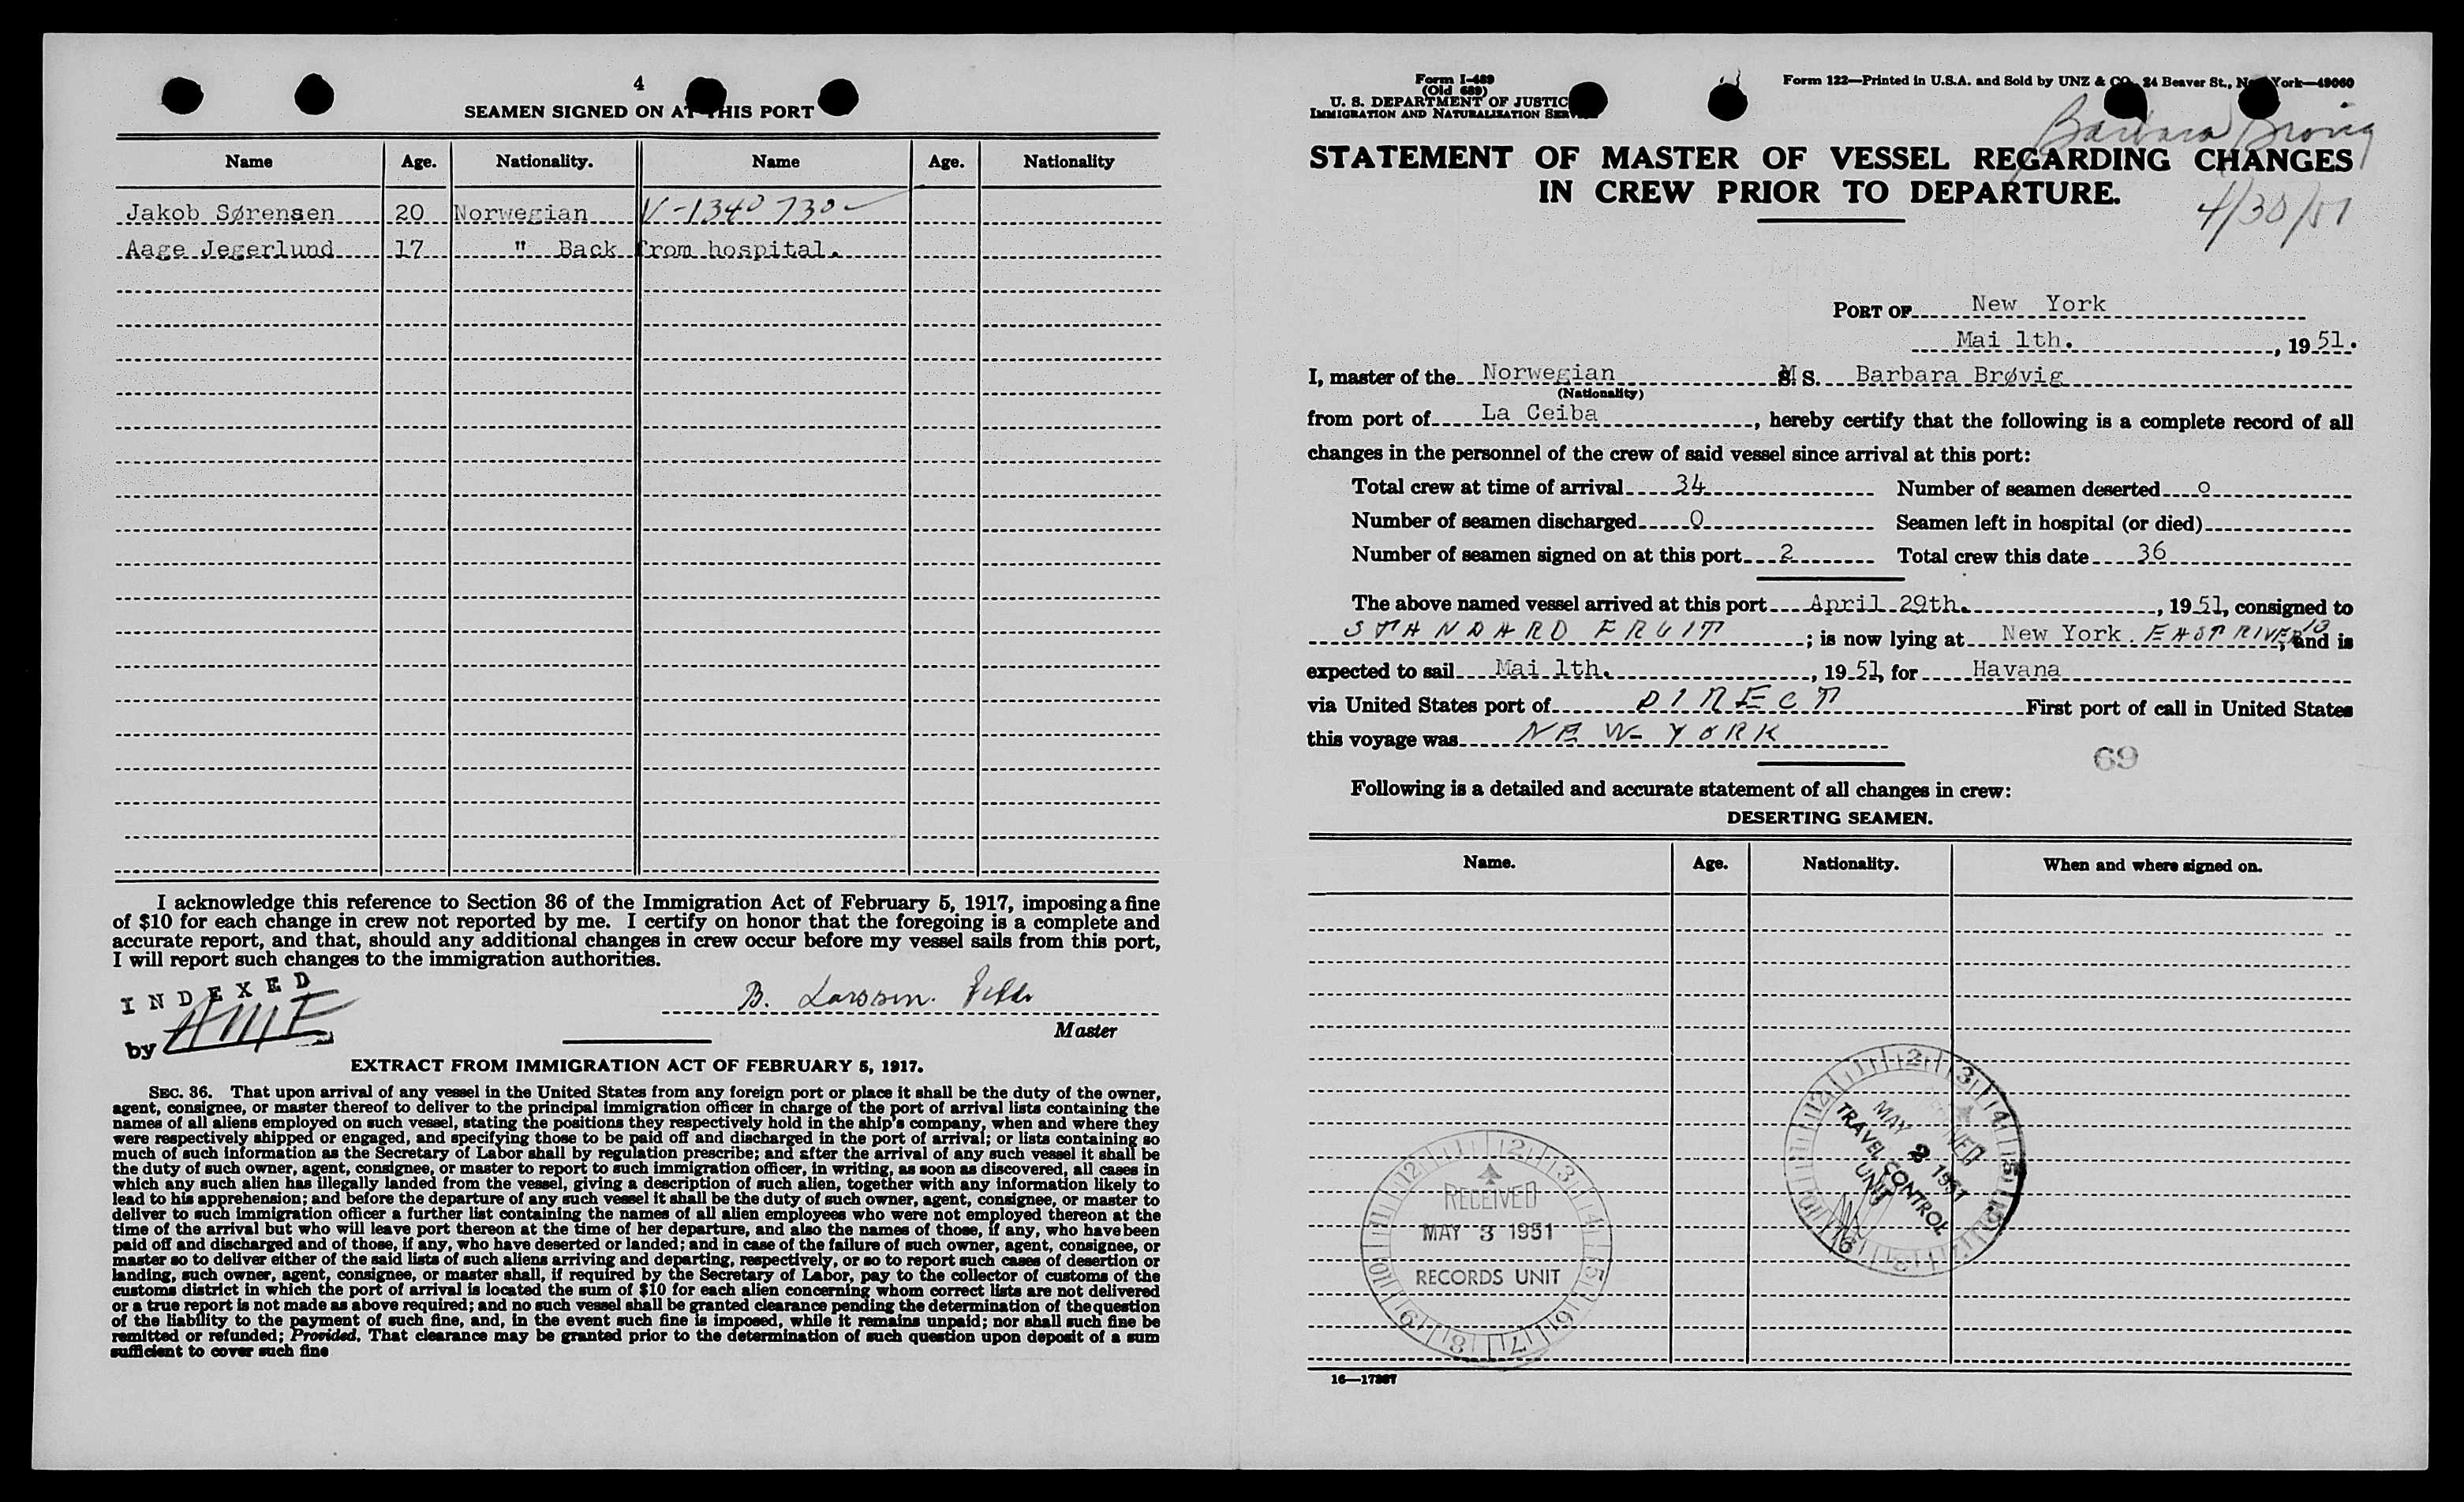 4
SEAMEN SIGNED ON AT THIS PORT
Name Age. Nationality. Name Age. Nationality
Jakob Sørensen 20 Norwegian V-1340730
Aage Jegerlund 17 " Back from hospital.
I acknowledge this reference to Section 36 of the Immigration Act of February 5, 1917, imposing a fine
of $10 for each change in crew not reported by me. I certify on honor that the foregoing is a complete and
accurate report, and that, should any additional changes in crew occur before my vessel sails from this port,
I will report such changes to the immigration authorities.
INDEXED
by AME
B. Larssen.
Master
EXTRACT FROM IMMIGRATION ACT OF FEBRUARY 5, 1917.
SEC. 36. That upon arrival of any vessel in the United States from any foreign port or place it shall be the duty of the owner,
agent, consignee, or master thereof to deliver to the principal immigration officer in charge of the port of arrival lists containing the
names of all aliens employed on such vessel, stating the positions they respectively hold in the ship's company, when and where they
were respectively shipped or engaged, and specifying those to be paid off and discharged in the port of arrival; or lists containing so
much of such information as the Secretary of Labor shall by regulation prescribe; and after the arrival of any such vessel it shall be
the duty of such owner, agent, consignee, or master to report to such immigration officer, in writing, as soon as discovered, all cases in
which any such alien has illegally landed from the vessel, giving a description of such alien, together with any information likely to
lead to his apprehension; and before the departure of any such vessel it shall be the duty of such owner, agent, consignee, or master to
deliver to such immigration officer a further list containing the names of all alien employees who were not employed thereon at the
time of the arrival but who will leave port thereon at the time of her departure, and also the names of those, if any, who have been
paid off and discharged and of those, if any, who have deserted or landed; and in case of the failure of such owner, agent, consignee, or
master so to deliver either of the said lists of such aliens arriving and departing, respectively, or so to report such cases of desertion or
landing, such owner, agent, consignee, or master shall, if required by the Secretary of Labor, pay to the collector of customs of the
customs district in which the port of arrival is located the sum of $10 for each alien concerning whom correct lists are not delivered
or a true report is not made as above required; and no such vessel shall be granted clearance pending the determination of the question
of the liability to the payment of such fine, and, in the event such fine is imposed, while it remains unpaid; nor shall such fine be
remitted or refunded; Provided, That clearance may be granted prior to the determination of such question upon deposit of a sum
sufficient to cover such fine
Form I-489
(Old 689)
U. S. DEPARTMENT OF JUSTICE
IMMIGRATION AND NATURALIZATION SERVICE
Form 122—Printed in U.S.A. and Sold by UNZ & CO., 24 Beaver St., New York—49060
Barbara Brovig
STATEMENT OF MASTER OF VESSEL REGARDING CHANGES
IN CREW PRIOR TO DEPARTURE.
4/30/51
PORT OF New York
Mai 1th. , 1951.
I, master of the Norwegian M S. Barbara Brøvig
(Nationality)
from port of La Ceiba , hereby certify that the following is a complete record of all
changes in the personnel of the crew of said vessel since arrival at this port:
Total crew at time of arrival 34 Number of seamen deserted 0
Number of seamen discharged 0 Seamen left in hospital (or died)
Number of seamen signed on at this port 2 Total crew this date 36
The above named vessel arrived at this port April 29th. , 1951, consigned to
STANDARD FRUIT ; is now lying at New York. EAST RIVER 13, and is
expected to sail Mai 1th. , 1951, for Havana
via United States port of DIRECT First port of call in United States
this voyage was NEW YORK
69
Following is a detailed and accurate statement of all changes in crew:
DESERTING SEAMEN.
Name. Age. Nationality. When and where signed on.
RECEIVED
MAY 2 1951
TRAVEL CONTROL
UNIT
RECEIVED
MAY 3 1951
RECORDS UNIT
16—17387